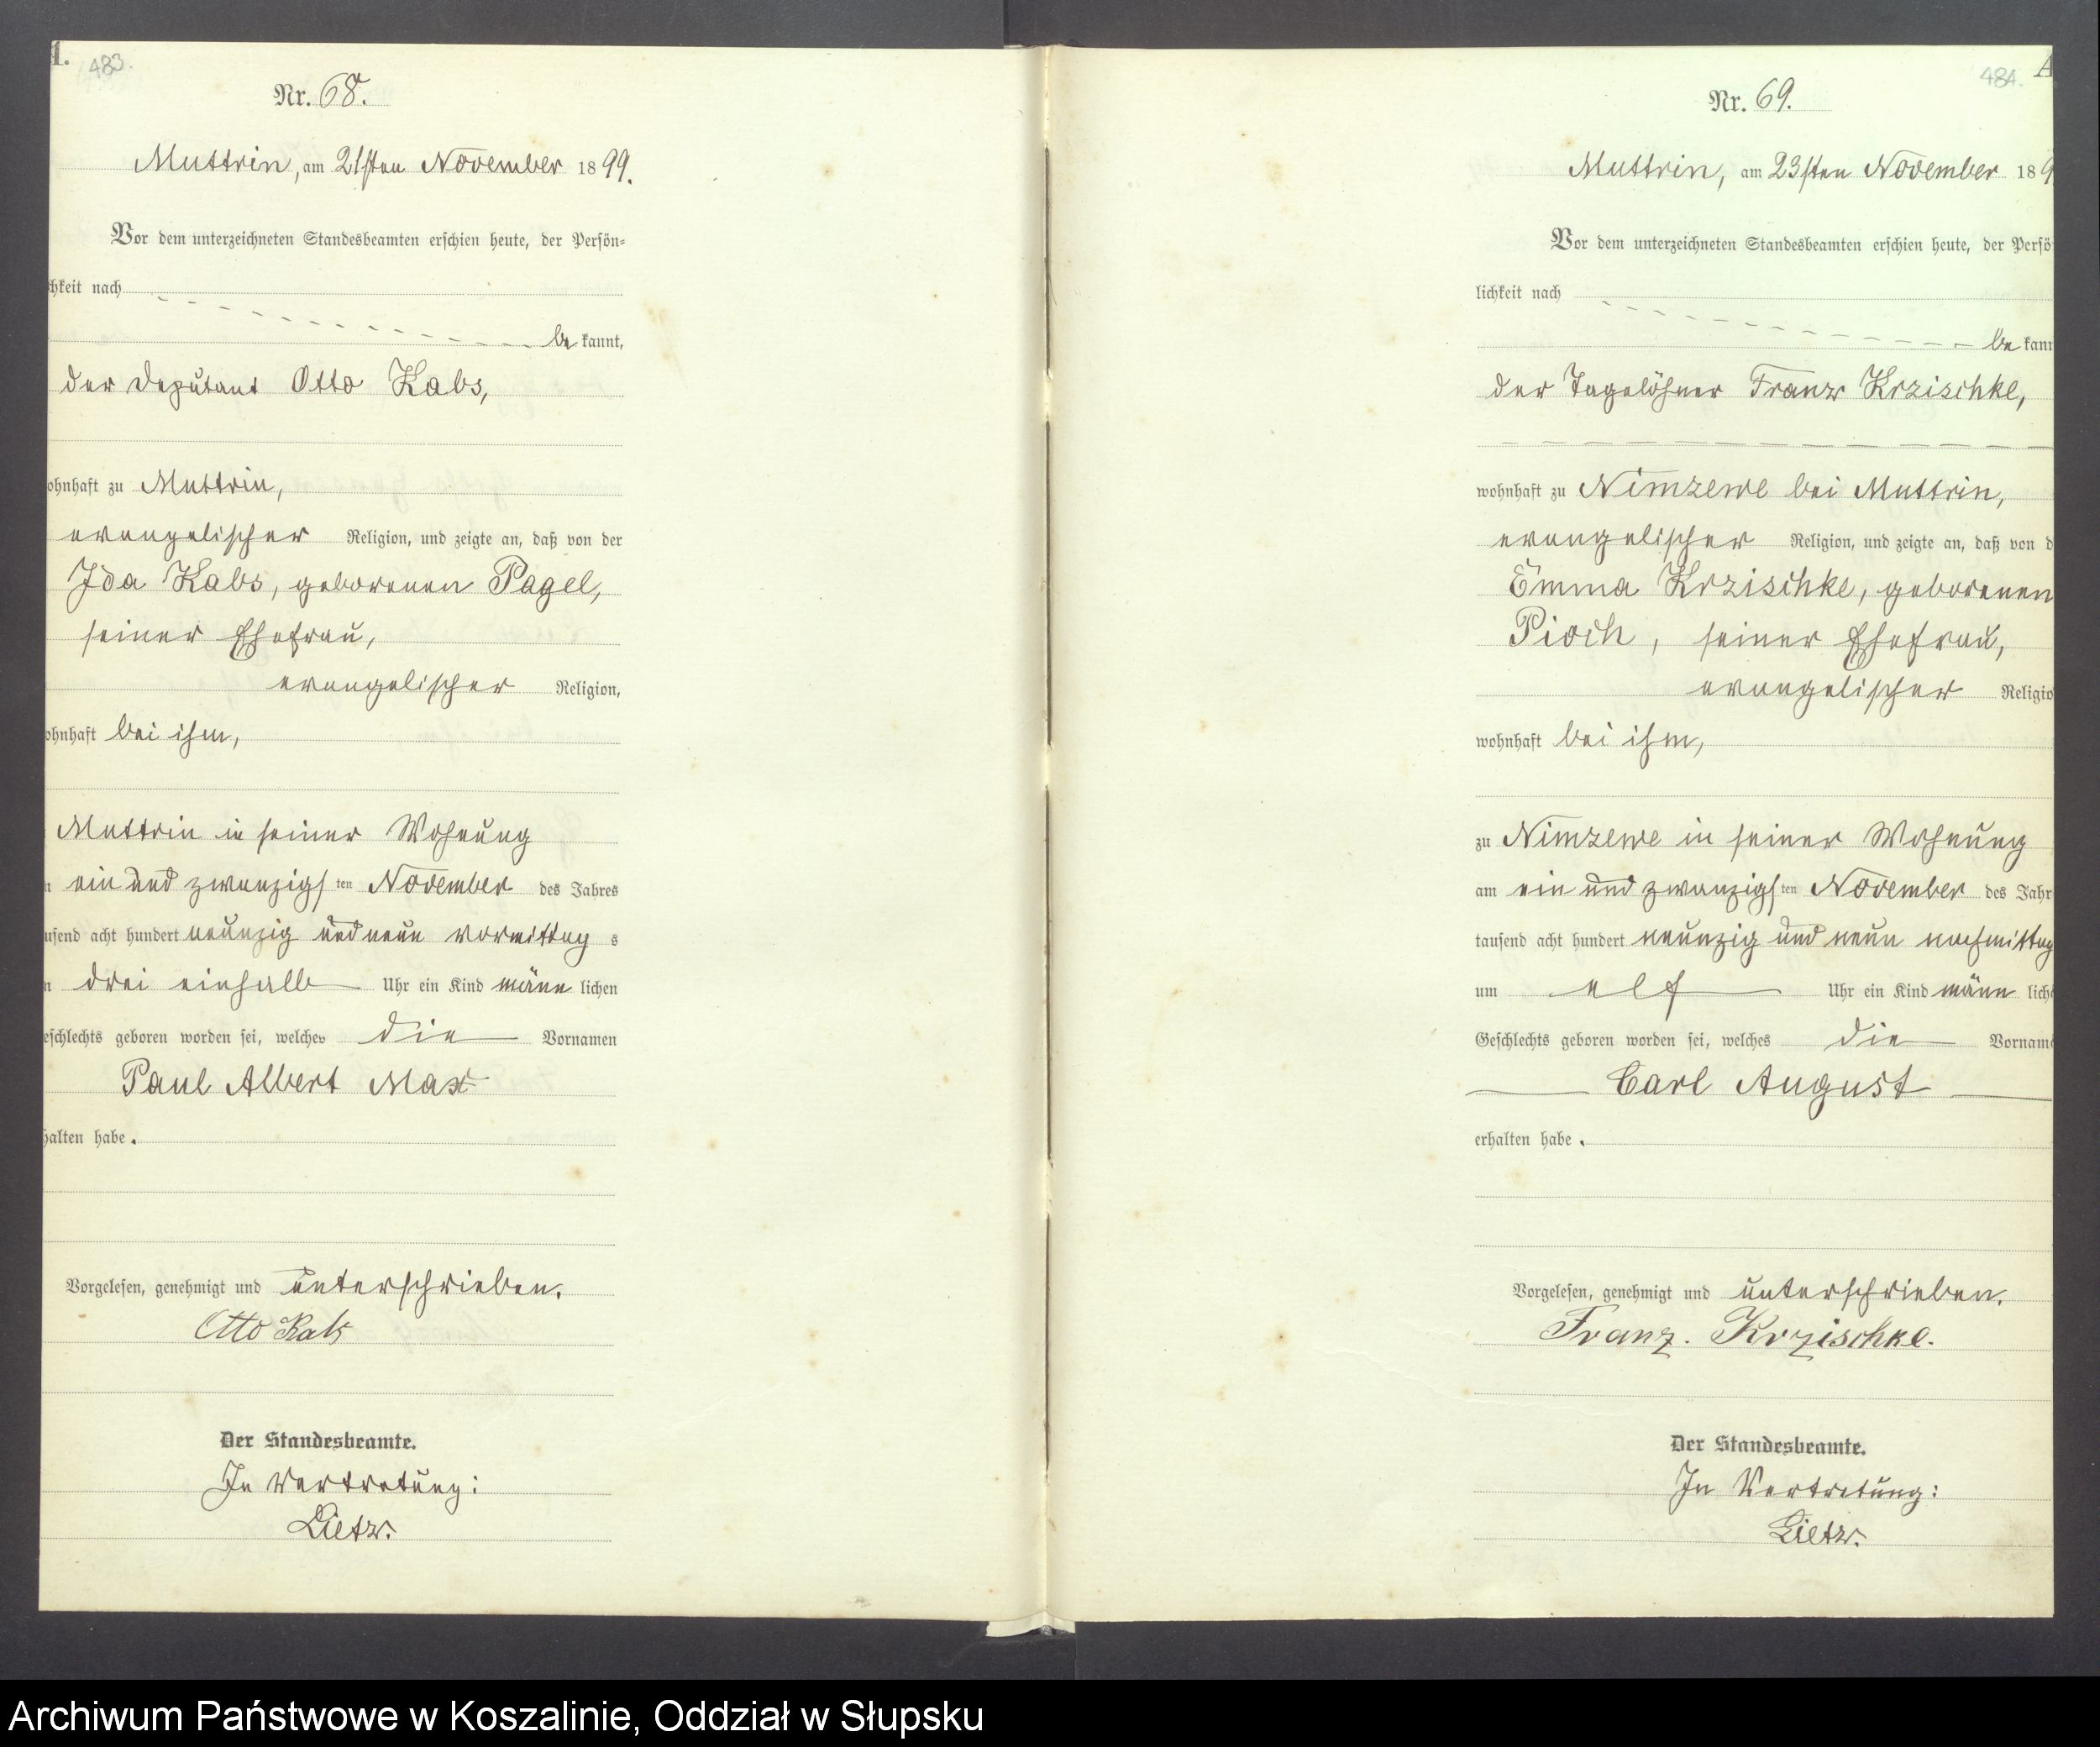 483.
Nr. 68.
Muttrin, am 21sten November 1899.
Vor dem unterzeichneten Standesbeamten erschien heute, der Persön=
chkeit nach
be kannt,
der Deputant Otto Kabs,
ohnhaft zu Muttrin,
evangelischer Religion, und zeigte an, daß von der
Ida Kabs, geborenen Pagel,
seiner Ehefrau,
evangelischer Religion,
ohnhaft bei ihm,
Muttrin in seiner Wohnung
ein und zwanzigsten November des Jahres
usend acht hundert neunzig und neun vormittag s
drei einhalb Uhr ein Kind männ lichen
eschlechts geboren worden sei, welches die Vornamen
Paul Albert Max
halten habe.
Vorgelesen, genehmigt und unterschrieben.
Otto Kabs
Der Standesbeamte.
In Vertretung:
Lietz.
484. A
Nr. 69.
Muttrin, am 23sten November 189
Vor dem unterzeichneten Standesbeamten erschien heute, der Persö
lichkeit nach
be kann
der Tagelöhner Franz Krzischke,
wohnhaft zu Nimzewe bei Muttrin,
evangelischer Religion, und zeigte an, daß von d
Emma Krzischke, geborenen
Pioch, seiner Ehefrau,
evangelischer Religio
wohnhaft bei ihm,
zu Nimzewe in seiner Wohnung
am ein und zwanzigsten November des Jahr
tausend acht hundert neunzig und neun nachmittag
um elf Uhr ein Kind männ lich
Geschlechts geboren worden sei, welches die Vornam
Carl August
erhalten habe.
Vorgelesen, genehmigt und unterschrieben.
Franz. Krzischke.
Der Standesbeamte.
In Vertretung:
Lietz.
Archiwum Państwowe w Koszalinie, Oddział w Słupsku